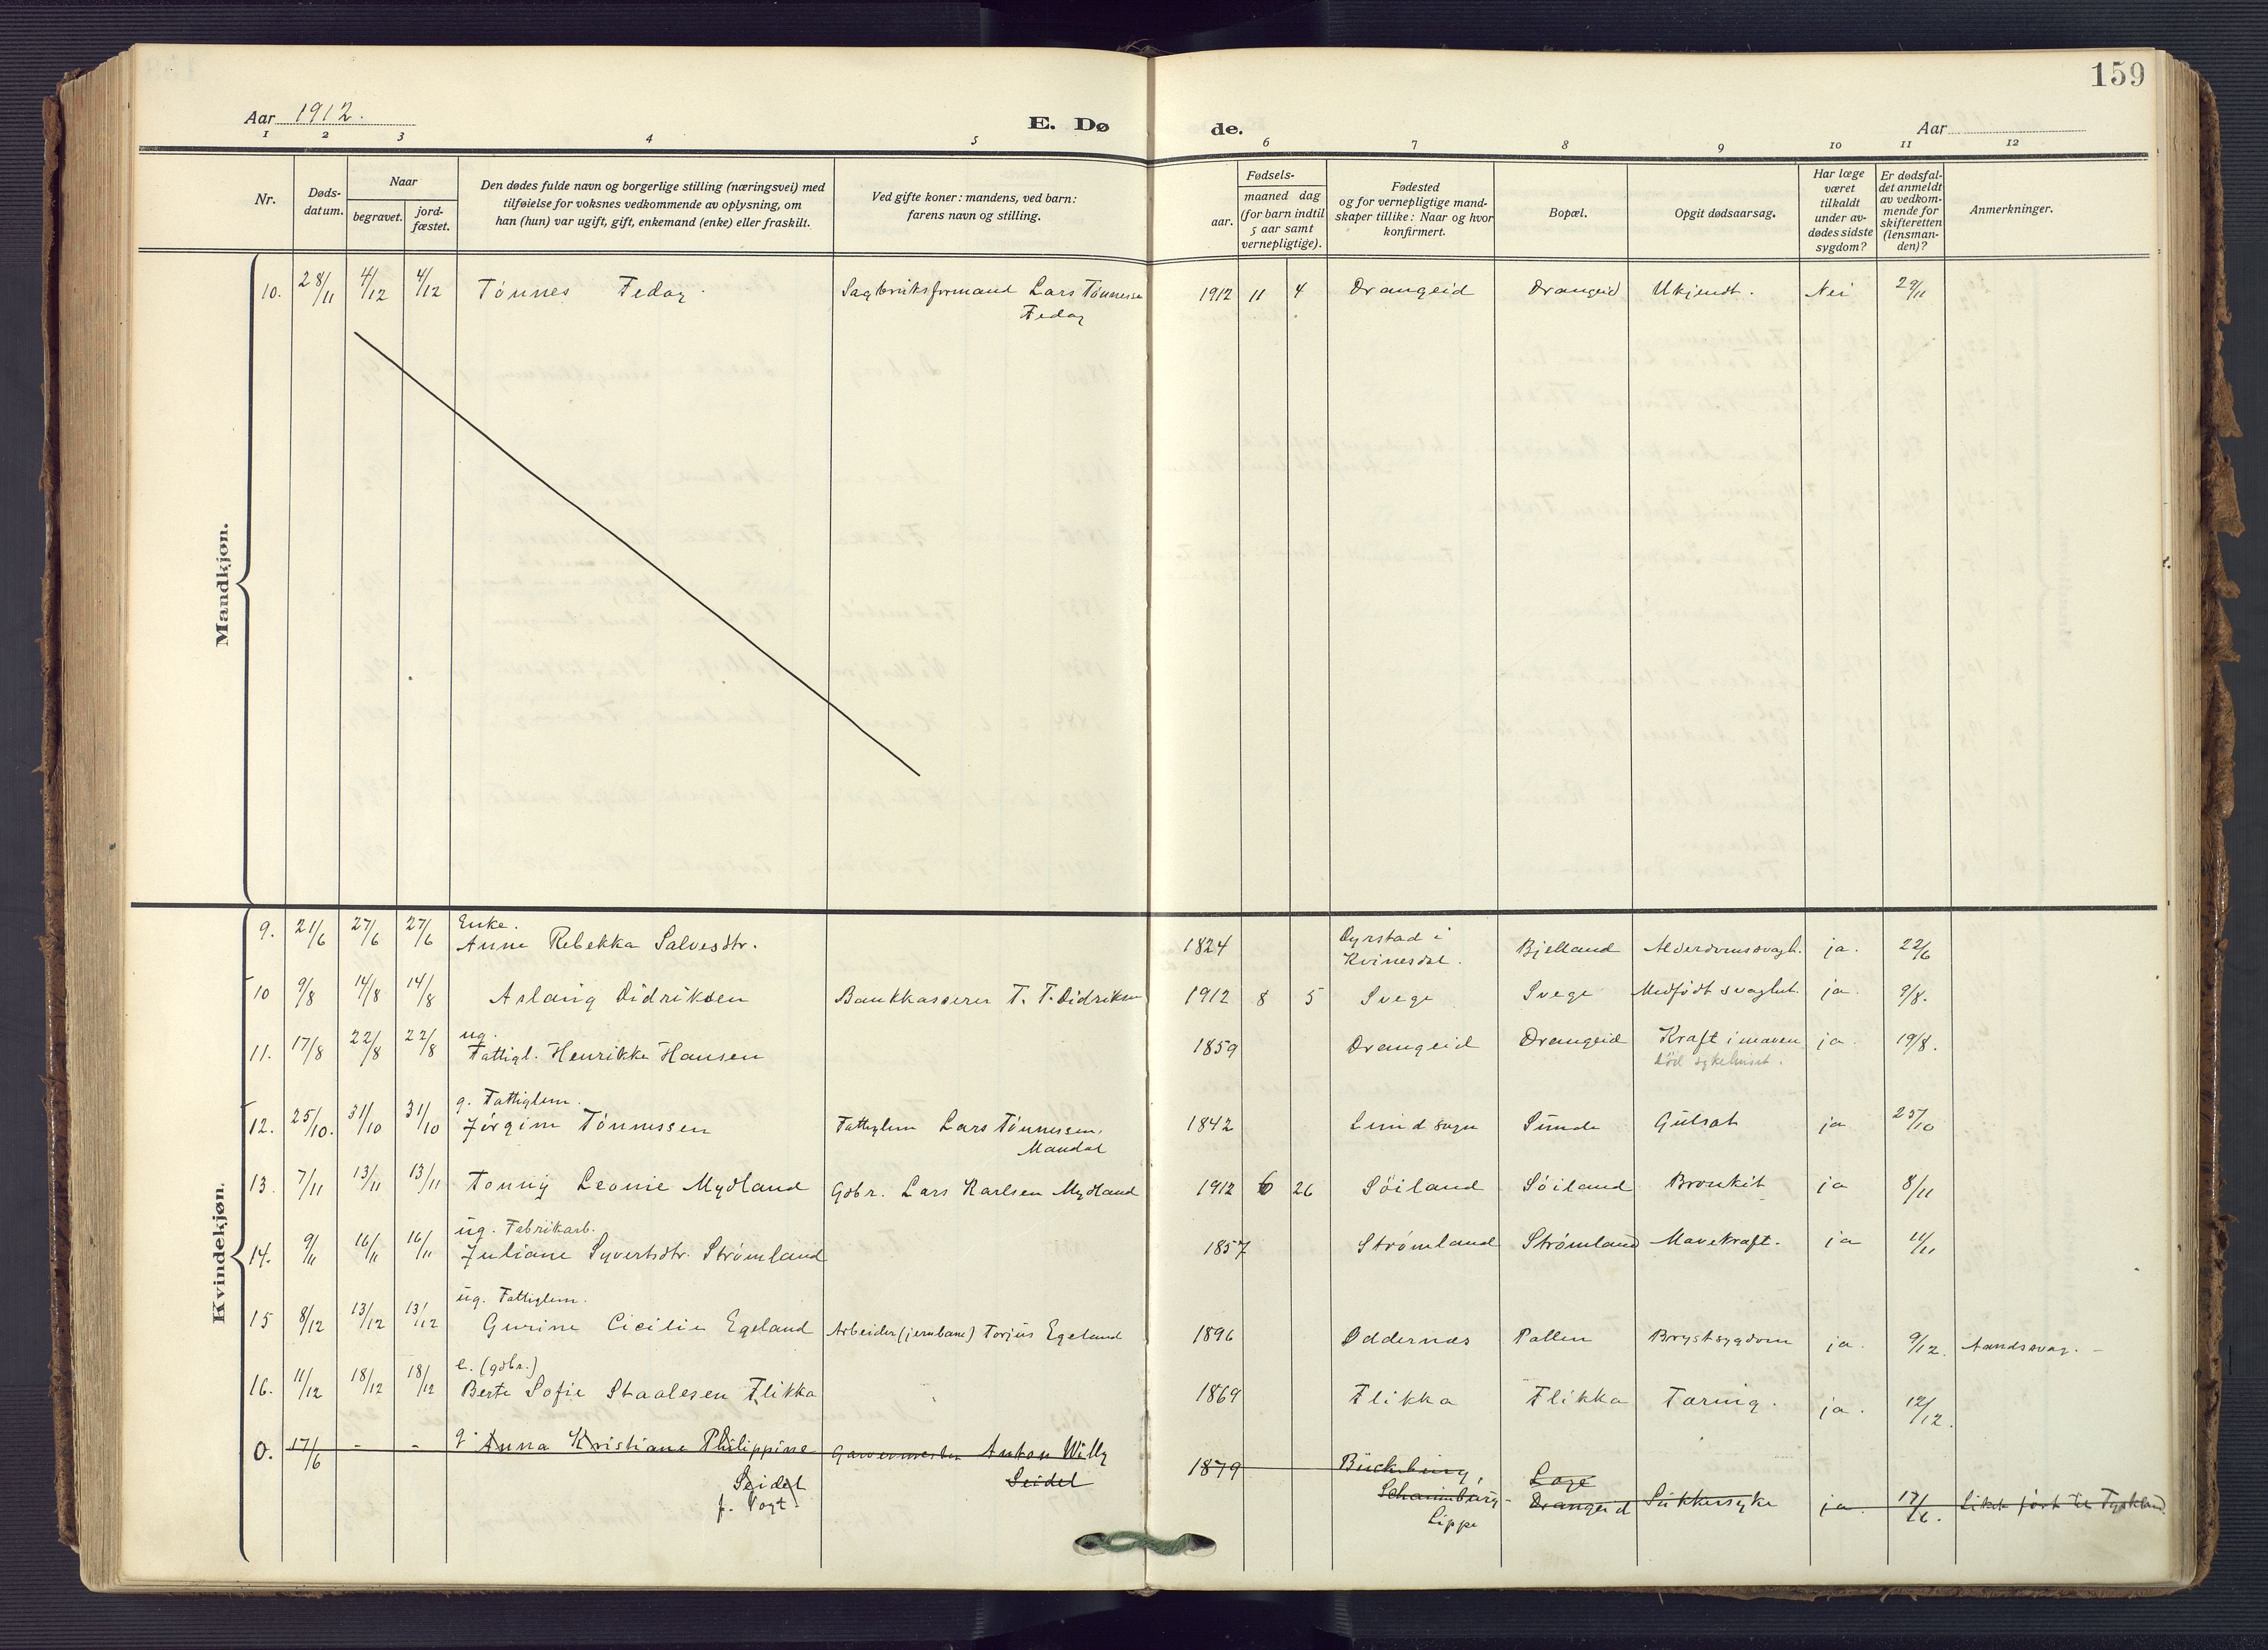 159
Aar 1912.
E. Dø de.
Aar
1 2 3 4 5 6 7 8 9 10 11 12
Nr.
Døds-
datum.
Naar
begravet.
jord-
fæstet.
Den dødes fulde navn og borgerlige stilling (næringsvei) med
tilføielse for voksnes vedkommende av oplysning, om
han (hun) var ugift, gift, enkemand (enke) eller fraskilt.
Ved gifte koner: mandens, ved barn:
farens navn og stilling.
Fødsels-
aar.
maaned dag
(for barn indtil
5 aar samt
vernepligtige).
Fødested
og for vernepligtige mand-
skaper tillike: Naar og hvor
konfirmert.
Bopæl.
Opgit dødsaarsag.
Har læge
været
tilkaldt
under av-
dødes sidste
sygdom?
Er dødsfal-
det anmeldt
av vedkom-
mende for
skifteretten
(lensman-
den)?
Anmerkninger.
Mandkjøn.
10. 28/11 4/12 4/12 Tønnes Fedog Sagbruksformand Lars Tønnessen 1912 11 4 Drangeid Drangeid Ukjendt. Nei 29/11
Fedog
Kvindekjøn.
Enke.
9. 21/6 27/6 27/6 Anne Rebekka Salvesdtr. 1824 Dyrstad i Bjelland Alderdomssvagh. ja. 22/6
Kvinesdal.
10 9/8 14/8 14/8 Aslaug Didriksen Bankkasserer T. T. Didriksen 1912 8 5 Svege Svege Medfødt svaghet. ja. 9/8.
ug.
11. 17/8 22/8 22/8 Fattigl. Henrikke Hansen 1859 Drangeid Drangeid Kræft i maven ja. 19/8.
død sykehuset.
g. Fattiglem.
12. 25/10. 31/10 31/10 Jørgine Tønnessen Fattiglem Lars Tønnessen, 1842 Lund sogn Sunde Gulsot ja 25/10
Mandal
13. 7/11 13/11 13/11 Tonny Leonie Mydland Gdbr. Lars Karlsen Mydland 1912 6 26 Søiland Søiland Bronkit ja 8/11
ug. Fabrikarb.
14. 9/11 16/11 16/11 Juliane Syvertsdtr. Strømland 1857 Strømland Strømland Mavekræft. ja 11/11
ug. Fattiglem.
15 8/12 13/12 13/12 Gurine Cicilie Egeland Arbeider (jernbane) Torjus Egeland 1896 Oddernæs Pollen Brystsygdom ja. 9/12. Aandssvag. –
e. (gdbr.)
16. 11/12 18/12 18/12 Berte Sofie Staalesen Flikka 1869 Flikka Flikka Tæring. ja. 12/12.
0. 17/6 - - g. Anna Kristiane Philippine Garvermester Anton Willy 1879 Bückeburg,
Seidel Seidel Schaumburg- Loge
f. Vogt. Lippe Drangeid Sukkersyke ja 17/6. Liket ført til Tyskland.